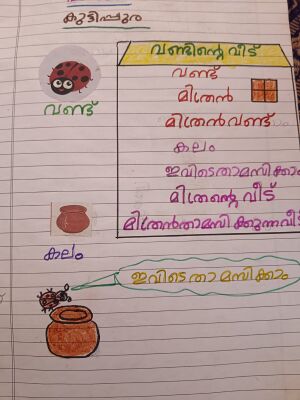 കുട്ടിപ്പുര
വണ്ടിന്റെ വീട്
വണ്ട്
മിത്രൻ
മിത്രൻവണ്ട്
കലം
ഇവിടെതാമസിക്കാം
മിത്രന്റെ വീട്
മിത്രൻതാമസിക്കുന്നവീട്
വണ്ട്
കലം
ഇവിടെ താമസിക്കാം